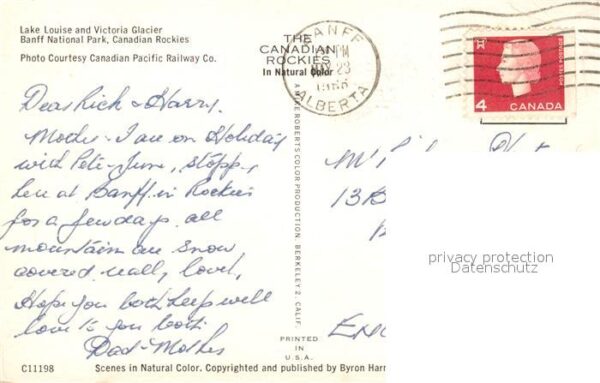 Lake Louise and Victoria Glacier
Banff National Park, Canadian Rockies
Photo Courtesy Canadian Pacific Railway Co.
THE
CANADIAN
ROCKIES
In Natural Color
BANFF
PM
23
ALBERTA
4 CANADA
Dear Rich & Harry.
Mother & I are on Holiday
with Pete & June, stopp
here at Banff in Rockies
for a few days all
mountain are snow
covered really lovely,
Hope you both keep well
love to you both
Dad & Mother
A MIKE ROBERTS COLOR PRODUCTION, BERKELEY 2, CALIF.
13B
privacy protection
Datenschutz
PRINTED
IN
U.S.A.
C11198
Scenes in Natural Color. Copyrighted and published by Byron Harm